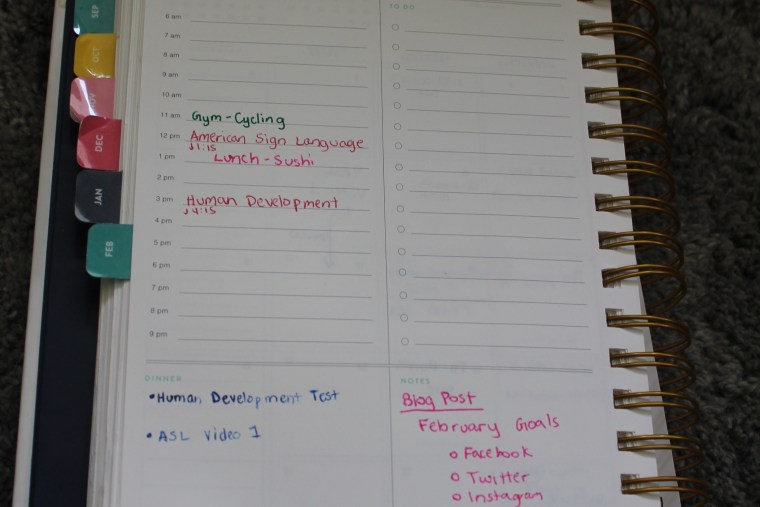 SEP
OCT
NOV
DEC
JAN
FEB
6 am
7 am
8 am
9 am
10 am
11 am Gym - Cycling
12 pm American Sign Language
↓1:15
1 pm Lunch - Sushi
2 pm
3 pm Human Development
↓4:15
4 pm
5 pm
6 pm
7 pm
8 pm
9 pm
TO DO
DINNER
• Human Development Test
• ASL Video 1
NOTES
Blog Post
February Goals
o Facebook
o Twitter
o Instagram